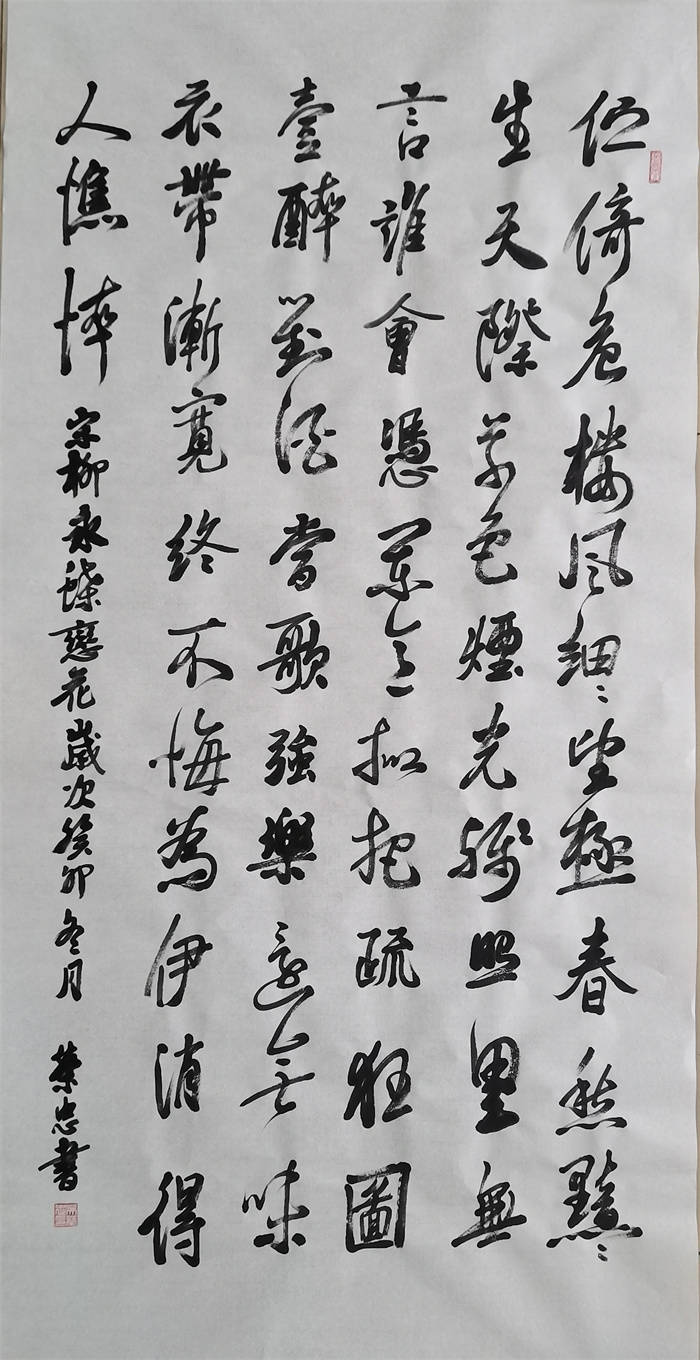 伫倚危楼风細〻望極春愁黯〻
生天際草色煙光殘照里無
言誰會憑闌意拟把疏狂圖
壹醉對酒當歌強樂還无味
衣帶漸寬終不悔為伊消得
人憔悴 宋柳永蝶戀花歲次癸卯冬月 榮忠書